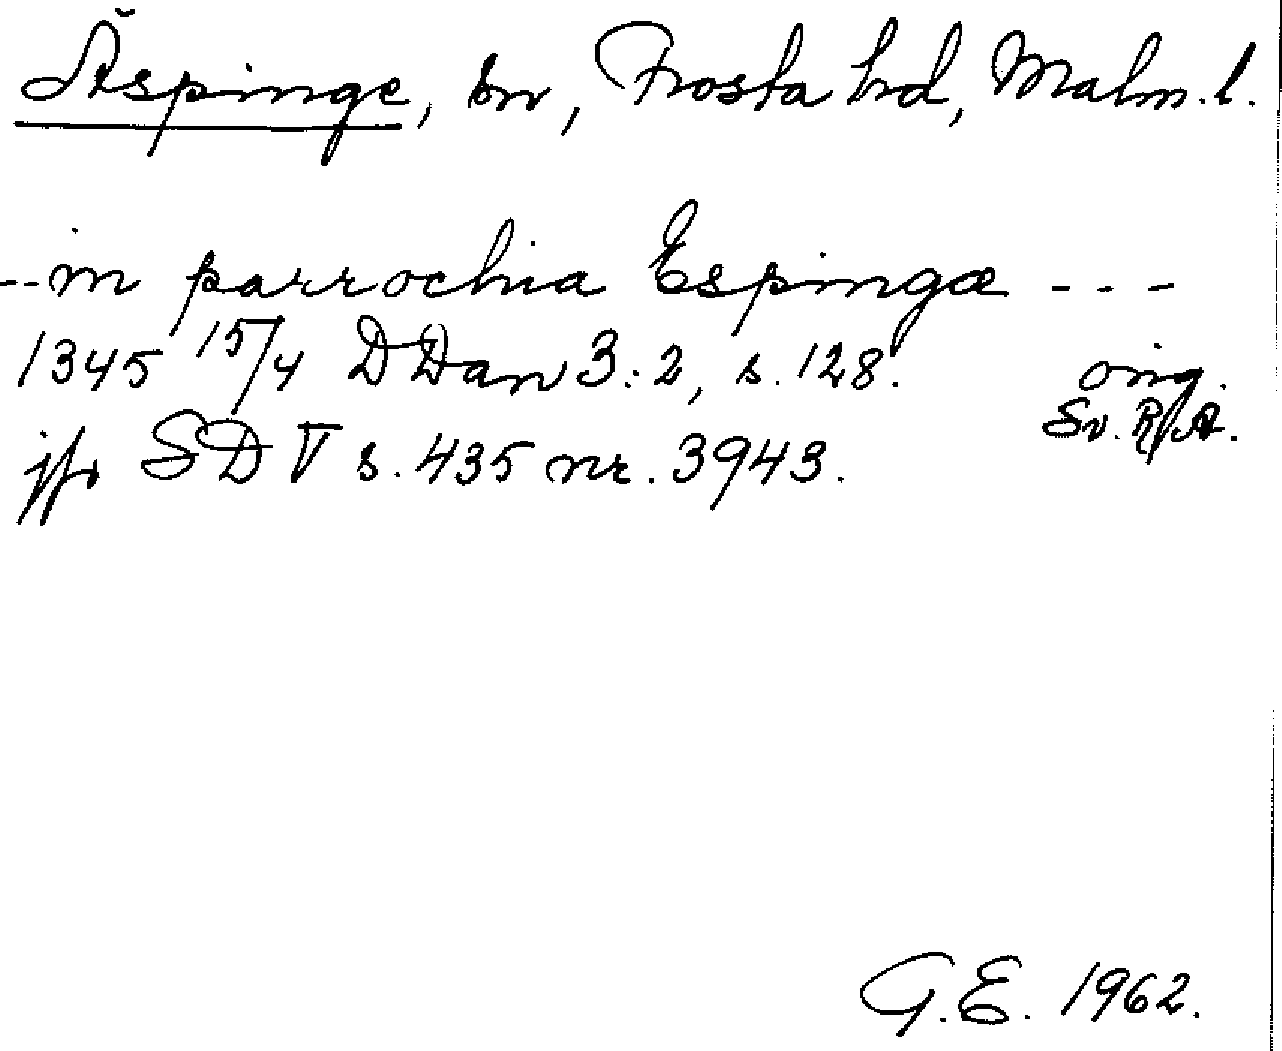 Äspinge, sn, Frosta hd, Malm. l.
-- in parrochia Espingæ ---
1345 15/4 DDan 3:2, s. 128. orig.
Sv. RA.
jfr SD V s. 435 nr. 3943.
G.E. 1962.